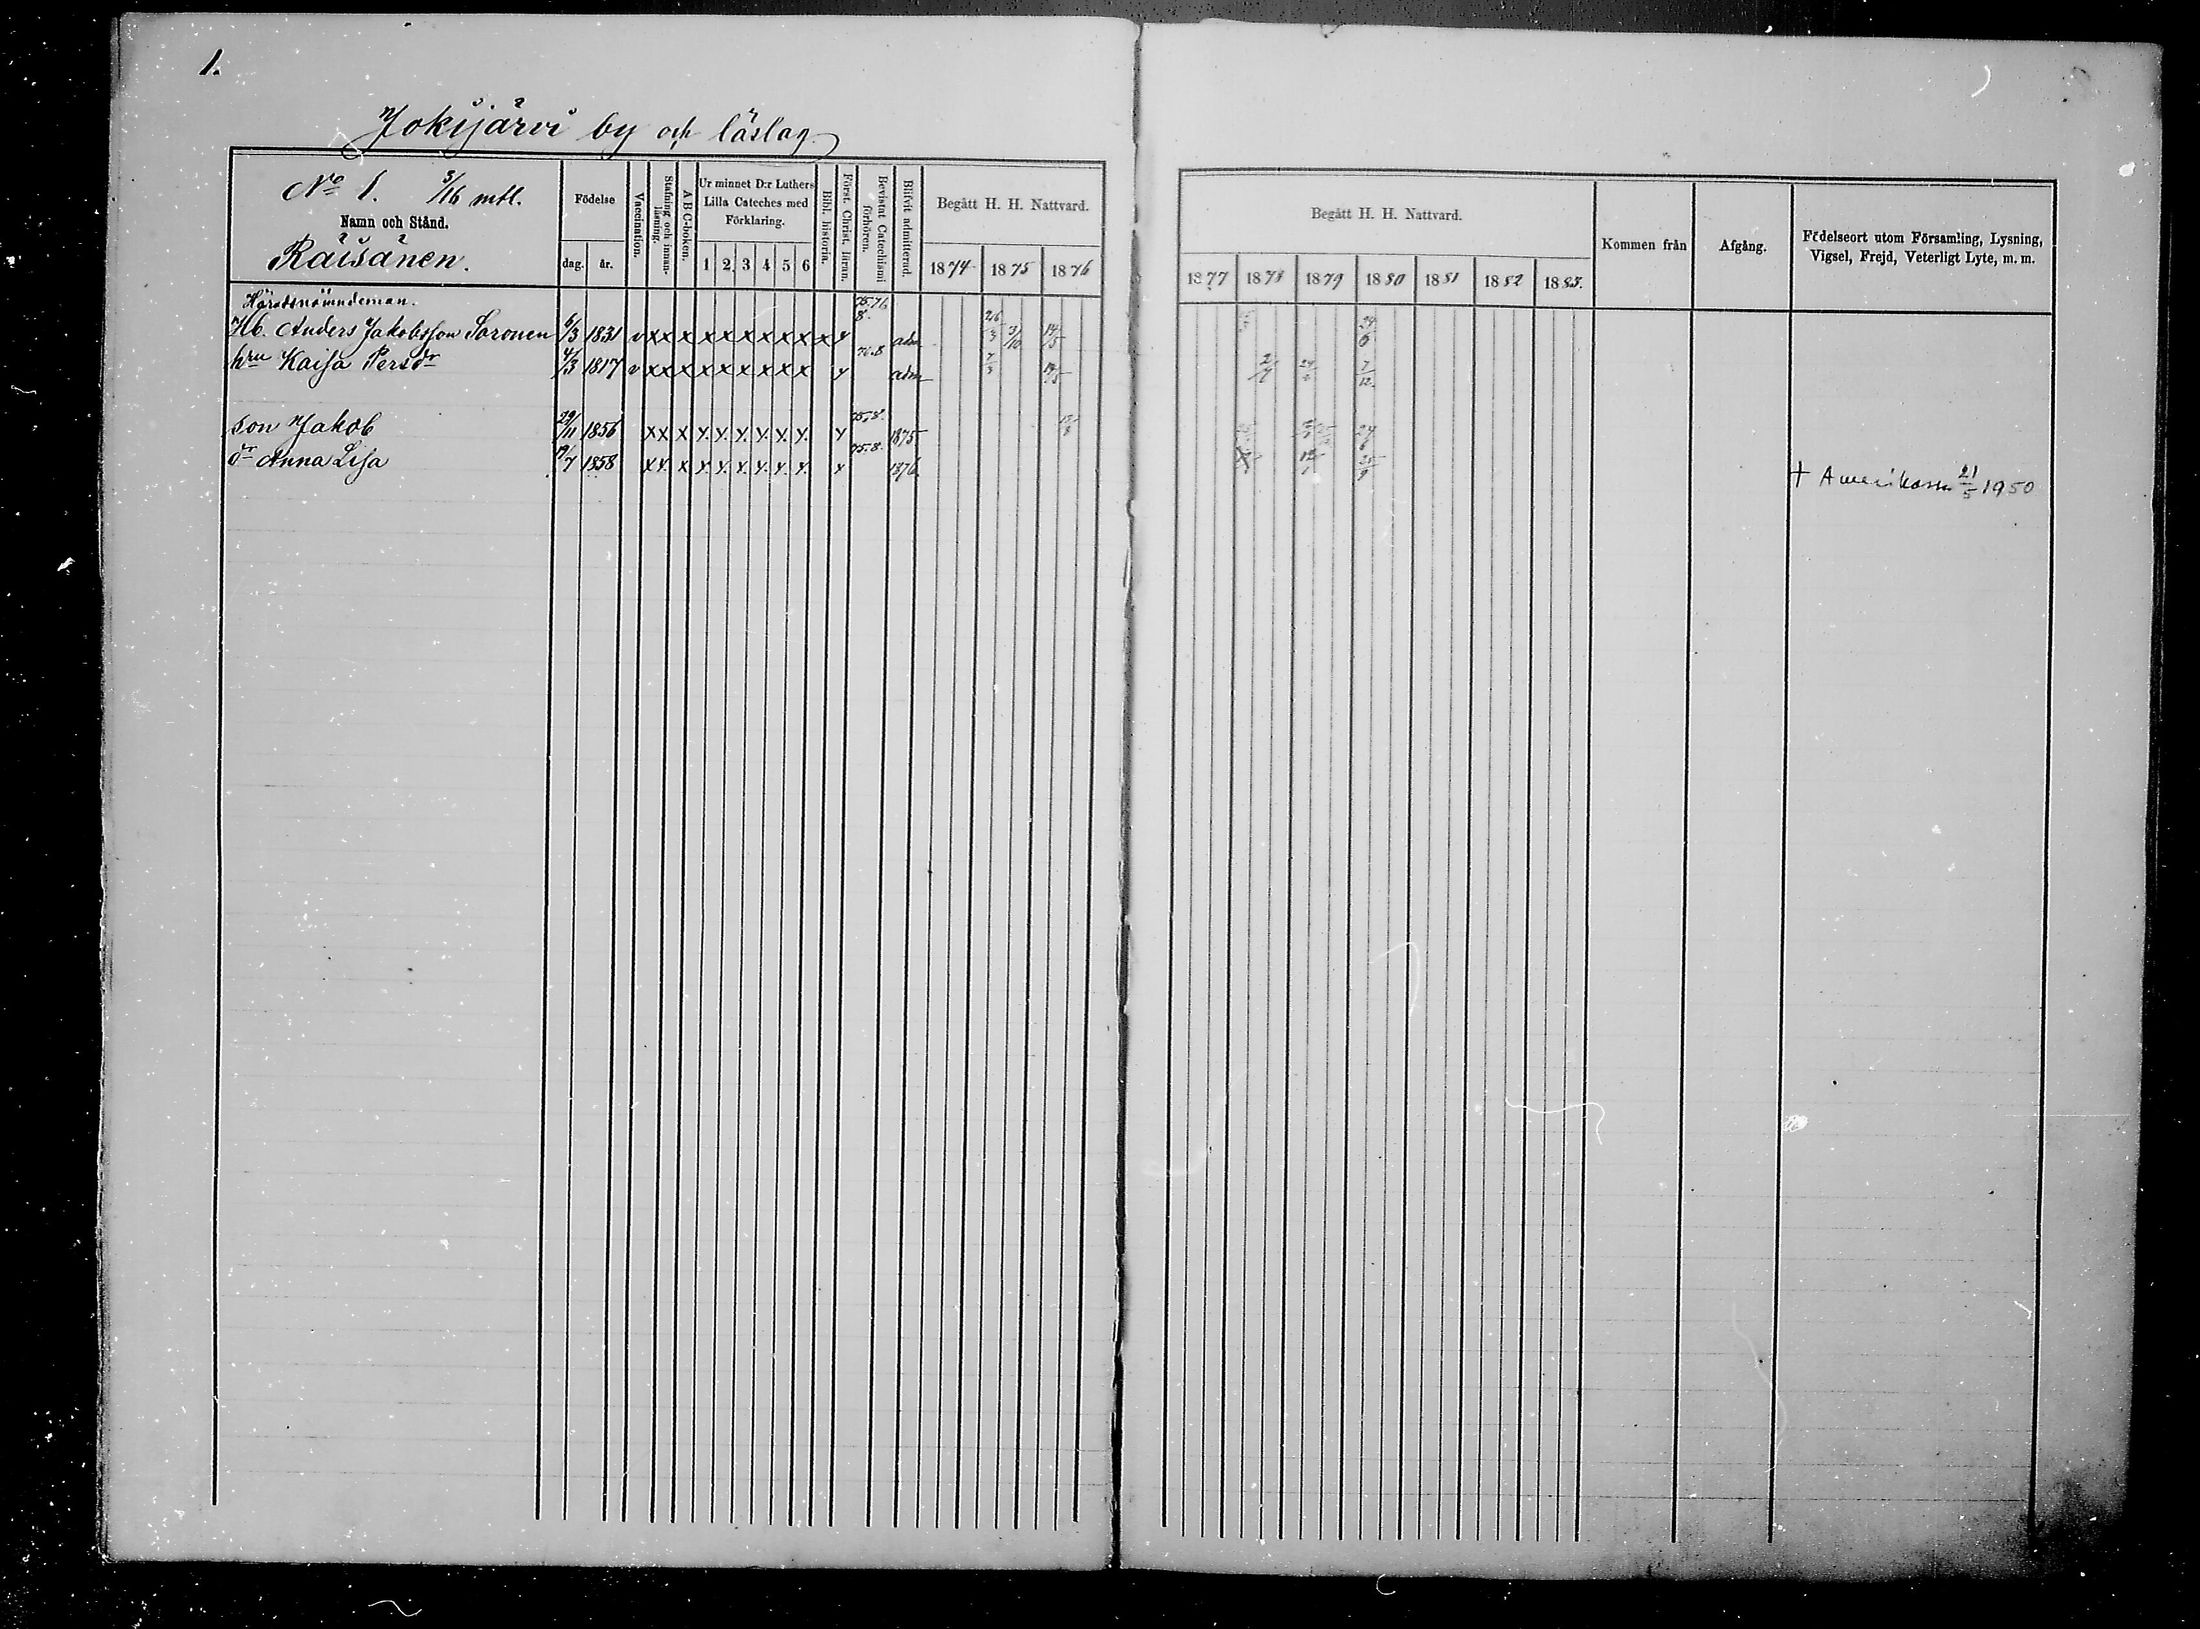 1.
Jokijärvi by och läslag.
No 1. 3/16 mtl.
Namn och Stånd.
Räisänen.
Födelse
dag. år.
Vaccination.
Stafning och innan-läsning.
A B C-boken.
Ur minnet D:r Luthers Lilla Cateches med Förklaring.
1 2 3 4 5 6
Bibl. historia.
Först. Christ. läran.
Bevistat Catechismi förhören.
Blifvit admitterad.
Begått H. H. Nattvard.
1874 1875 1876
Begått H. H. Nattvard.
1877 1878 1879 1880 1881 1882 1883.
Kommen från
Afgång.
Födelseort utom Församling, Lysning, Vigsel, Frejd, Veterligt Lyte, m. m.
Häradsnämndeman. 75.76 8.
Hb. Anders Jakobsson Soronen 6/3 1831 v x x x x x x x x x x y adm 26/3 3/10 14/5 24/6
hru Kaisa Persdr 4/3 1817 v x x x x x x x x x y 76.8 adm 7/3 14/5 2/7 7/12
son Jakob 29/11 1856 x x x y. y. y. y. y. y. y 75.8. 1875 24/6
dr Anna Lisa 19/7 1858 x y. x y. y. y. y. y. y. y 75.8. 1876
† Amerikassa 21/5 1950